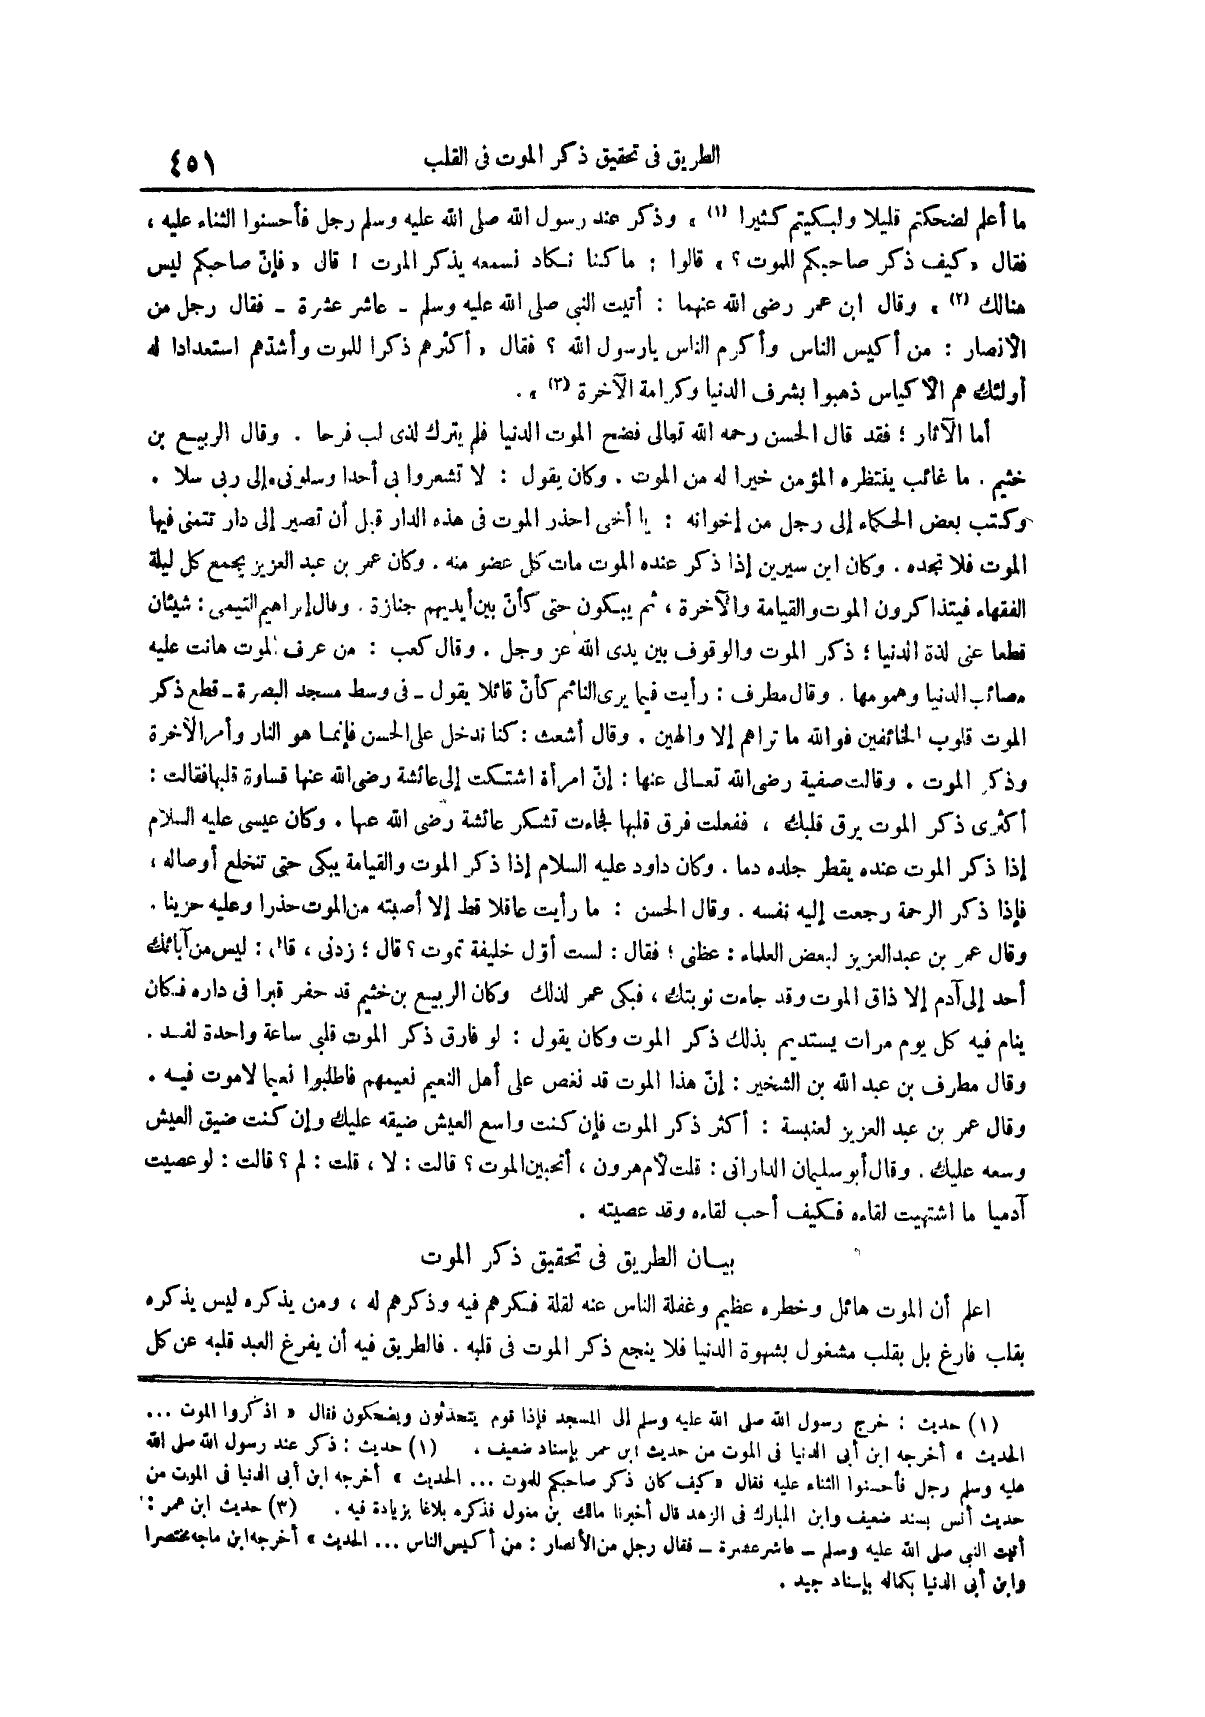 الطريق فى تحقيق ذكر الموت فى القلب
٤٥١
ما أعلم لضحكتم قليلا ولبكيتم كثيرا (١) » وذكر عند رسول الله صلى الله عليه وسلم رجل فأحسنوا الثناء عليه ،
فقال « كيف ذكر صاحبكم للموت ؟ » قالوا : ما كنا نكاد نسمعه يذكر الموت ! قال « فإنّ صاحبكم ليس
هنالك (٢) » وقال ابن عمر رضى الله عنهما : أتيت النبي صلى الله عليه وسلم ـ عاشر عشرة ـ فقال رجل من
الأنصار : من أكيس الناس وأكرم الناس يارسول الله ؟ فقال « أكثرهم ذكرا للموت وأشدّهم استعدادا له
أولئك هم الأكياس ذهبوا بشرف الدنيا وكرامة الآخرة (٣) » .
أما الآثار ؛ فقد قال الحسن رحمه الله تعالى فضح الموت الدنيا فلم يترك لذى لب فرحا . وقال الربيع بن
خثيم . ما غائب ينتظره المؤمن خيرا له من الموت . وكان يقول : لا تشعروا بى أحدا وسلونى إلى ربى سلا .
وكتب بعض الحكماء إلى رجل من إخوانه : يا أخى احذر الموت فى هذه الدار قبل أن تصير إلى دار تتمنى فيها
الموت فلا تجده . وكان ابن سيرين إذا ذكر عنده الموت مات كل عضو منه . وكان عمر بن عبد العزيز يجمع كل ليلة
الفقهاء فيتذاكرون الموت والقيامة والآخرة ، ثم يبكون حتى كأنّ بين أيديهم جنازة . وقال إبراهيم التيمى : شيئان
قطعا عنى لذة الدنيا ؛ ذكر الموت والوقوف بين يدى الله عز وجل . وقال كعب : من عرف الموت هانت عليه
مصائب الدنيا وهمومها . وقال مطرف : رأيت فيما يرى النائم كأنّ قائلا يقول ـ فى وسط مسجد البصرة ـ قطع ذكر
الموت قلوب الخائفين فوالله ما تراهم إلا والهين . وقال أشعث : كنا ندخل على الحسن فإنما هو النار وأمر الآخرة
وذكر الموت . وقالت صفية رضى الله تعالى عنها : إنّ امرأة اشتكت إلى عائشة رضى الله عنها قساوة قلبها فقالت :
أكثرى ذكر الموت يرق قلبك ، ففعلت فرق قلبها فجاءت تشكر عائشة رضى الله عنها . وكان عيسى عليه السلام
إذا ذكر الموت عنده يقطر جلده دما . وكان داود عليه السلام إذا ذكر الموت والقيامة يبكى حتى تنخلع أوصاله ،
فإذا ذكر الرحمة رجعت إليه نفسه . وقال الحسن : ما رأيت عاقلا قط إلا أصبته من الموت حذرا وعليه حزينا .
وقال عمر بن عبد العزيز لبعض العلماء : عظنى ؛ فقال : لست أوّل خليفة تموت ؟ قال ؛ زدنى ، قال : ليس من آبائك
أحد إلى آدم إلا ذاق الموت وقد جاءت نوبتك ، فبكى عمر لذلك وكان الربيع بن خثيم قد حفر قبرا فى داره فكان
ينام فيه كل يوم مرات يستديم بذلك ذكر الموت وكان يقول : لو فارق ذكر الموت قلبى ساعة واحدة لفسد .
وقال مطرف بن عبد الله بن الشخير : إنّ هذا الموت قد نغص على أهل النعيم نعيمهم فاطلبوا نعيما لاموت فيه .
وقال عمر بن عبد العزيز لعنبسة : أكثر ذكر الموت فإن كنت واسع العيش ضيقه عليك وإن كنت ضيق العيش
وسعه عليك . وقال أبو سليمان الدارانى : قلت لأم هرون ، أتحبين الموت ؟ قالت : لا ، قلت : لم ؟ قالت : لو عصيت
آدميا ما اشتهيت لقاءه فكيف أحب لقاءه وقد عصيته .
بيان الطريق فى تحقيق ذكر الموت
اعلم أن الموت هائل وخطره عظيم وغفلة الناس عنه لقلة فكرهم فيه وذكرهم له ، ومن يذكره ليس يذكره
بقلب فارغ بل بقلب مشغول بشهوة الدنيا فلا ينجع ذكر الموت فى قلبه . فالطريق فيه أن يفرغ العبد قلبه عن كل
(١) حديث : خرج رسول الله صلى الله عليه وسلم إلى المسجد فإذا قوم يتحدثون ويضحكون فقال « اذكروا الموت ...
الحديث » أخرجه ابن أبى الدنيا فى الموت من حديث ابن عمر بإسناد ضعيف . (١) حديث : ذكر عند رسول الله صلى الله
عليه وسلم رجل فأحسنوا الثناء عليه فقال « كيف كان ذكر صاحبكم للموت ... الحديث » أخرجه ابن أبى الدنيا فى الموت من
حديث أنس بسند ضعيف وابن المبارك فى الزهد قال أخبرنا مالك بن مغول فذكره بلاغا بزيادة فيه . (٣) حديث ابن عمر :
أتيت النبي صلى الله عليه وسلم ـ عاشر عشرة ـ فقال رجل من الأنصار : من أكيس الناس ... الحديث » أخرجه ابن ماجه مختصرا
وابن أبى الدنيا بكماله بإسناد جيد .